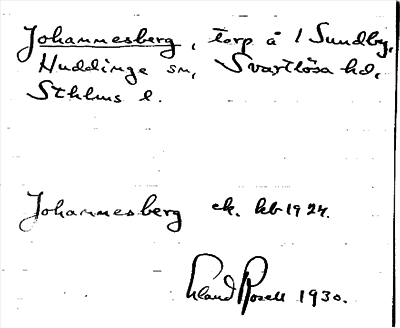 Johannesberg, torp å 1 Sundby,
Huddinge sn, Svartlösa hd,
Sthlms l.
Johannesberg ek. kb 1924.
Erland Rosell 1930.